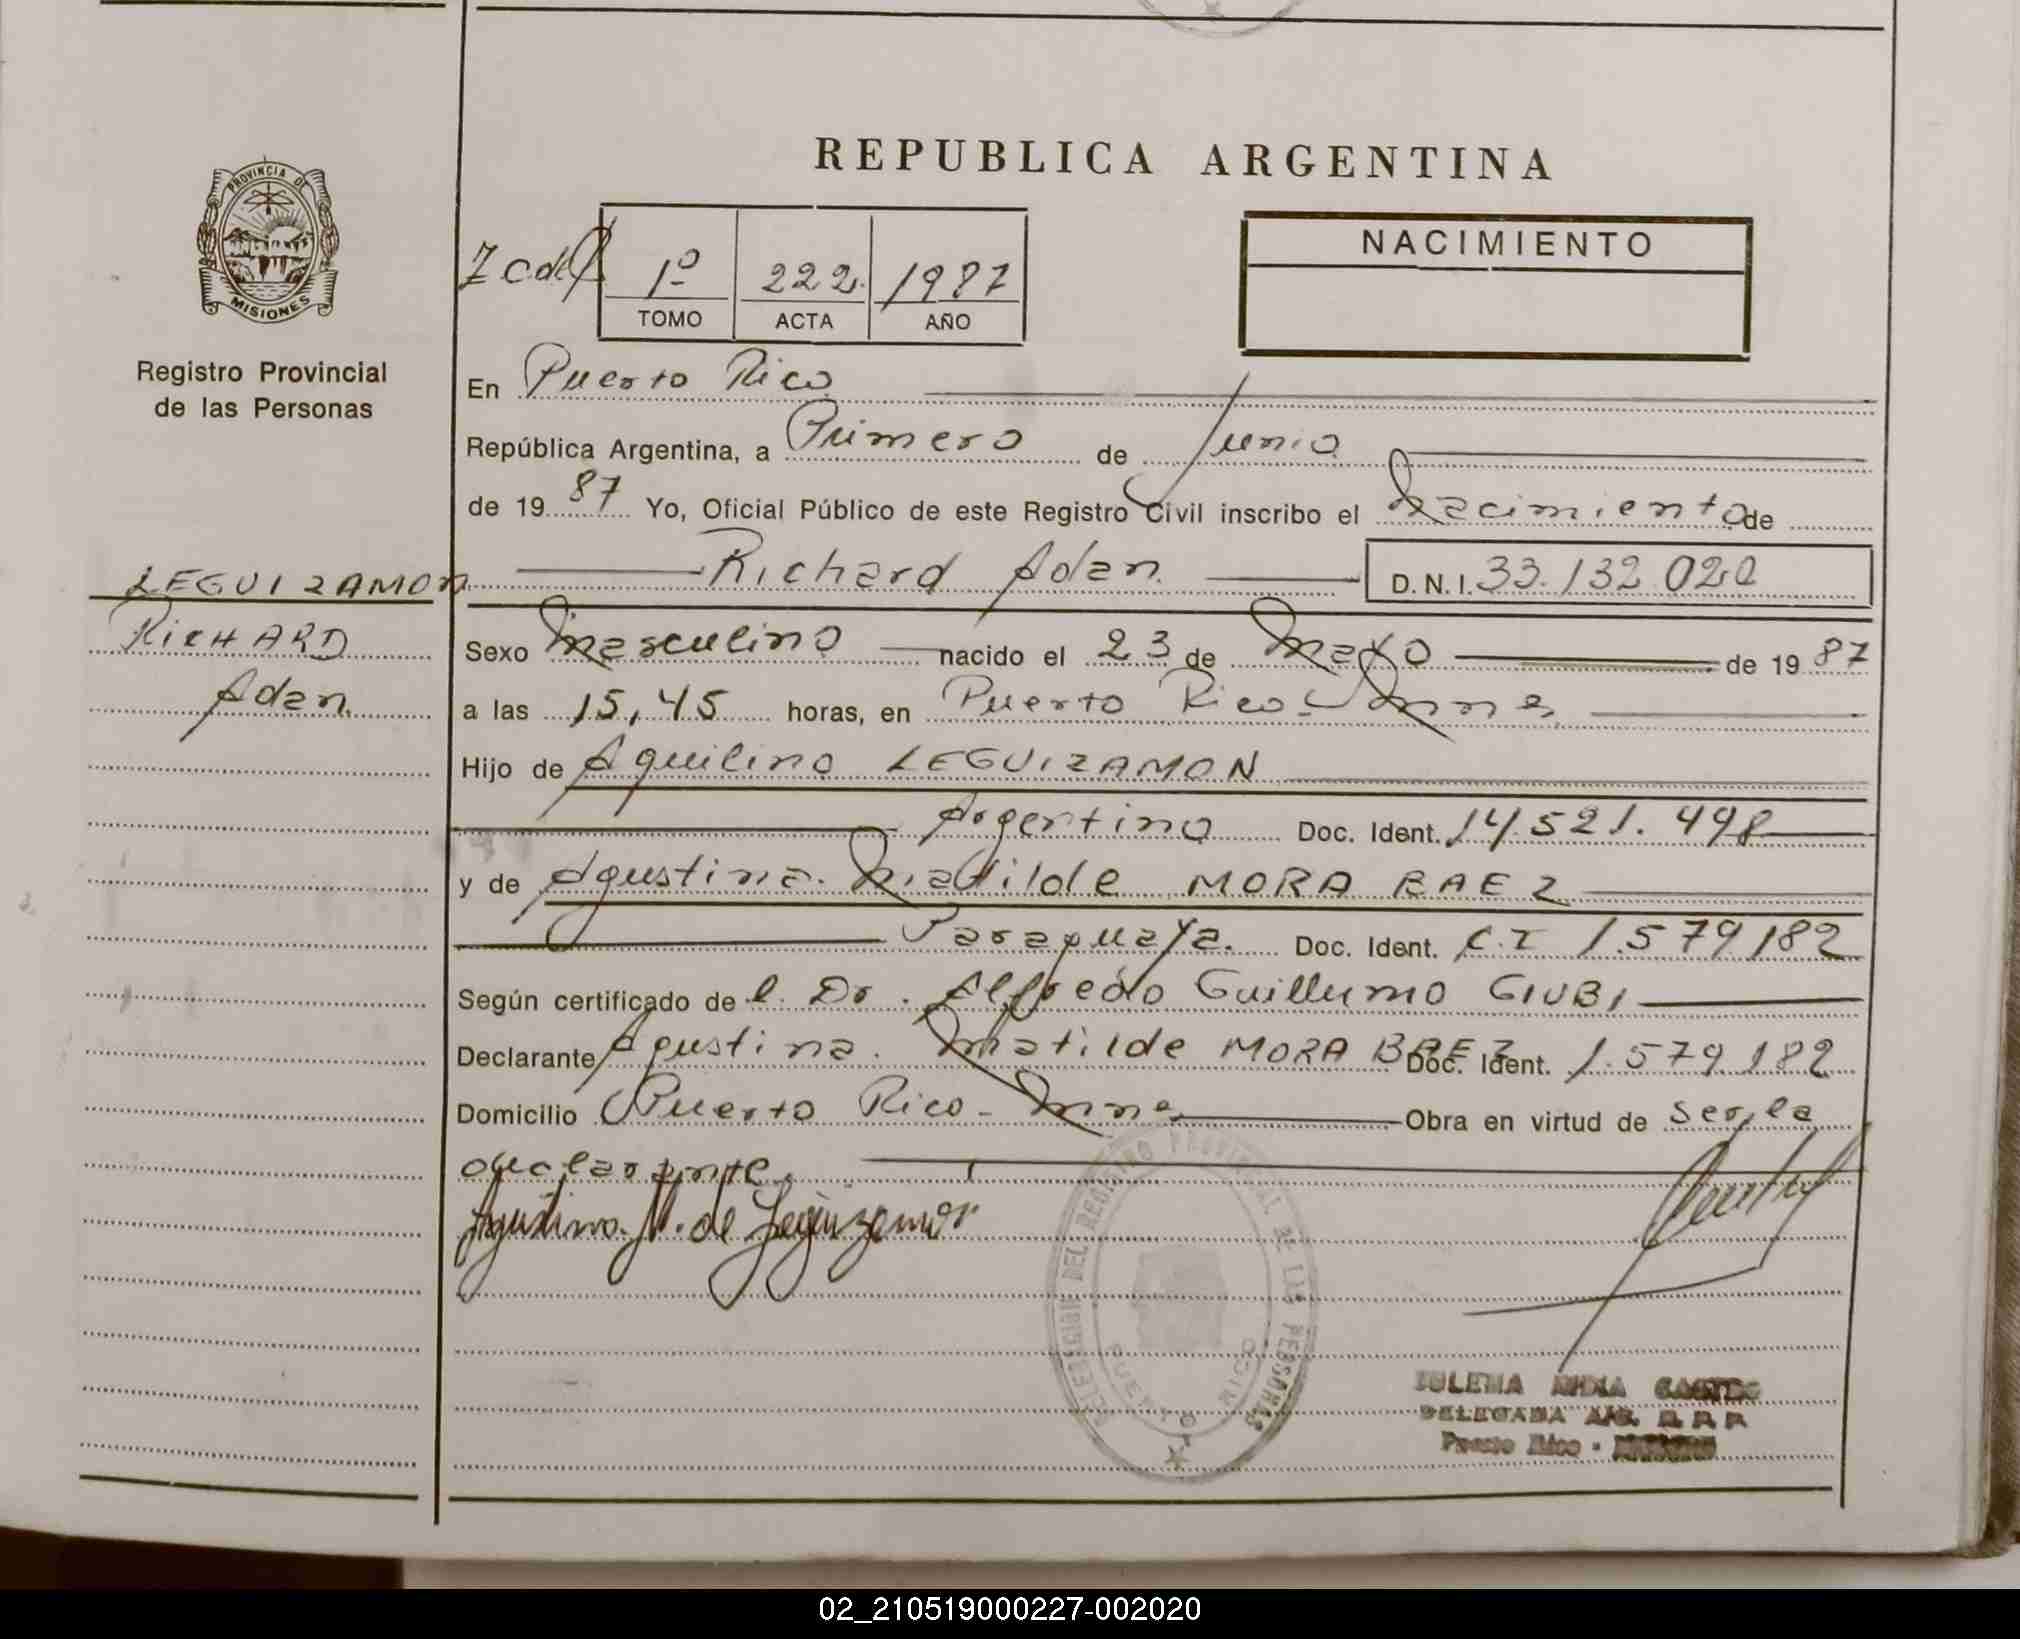 REPUBLICA ARGENTINA
PROVINCIA DE
MISIONES
Registro Provincial
de las Personas
1º 222 1987
TOMO ACTA AÑO
NACIMIENTO
En Puerto Rico
República Argentina, a Primero de Junio
de 19 87 Yo, Oficial Público de este Registro Civil inscribo el Nacimiento de
Richard Adan D.N.I. 33.132.020
LEGUIZAMON
RICHARD
Adan
Sexo Masculino nacido el 23 de Mayo de 19 87
a las 15,45 horas, en Puerto Rico - Mnes
Hijo de Aquilino LEGUIZAMON
Argentino Doc. Ident. 14.521.498
y de Agustina Matilde MORA BAEZ
Paraguaya. Doc. Ident. C.I 1.579.182
Según certificado de l. Dr. Alfredo Guillermo GIUBI
Declarante Agustina Matilde MORA BAEZ Doc. Ident. 1.579.182
Domicilio Puerto Rico - Mnes Obra en virtud de ser la
declarante
Agustina M. de Leguizamon
DELEGACION DEL REGISTRO PROVINCIAL DE LAS PERSONAS
PUERTO RICO
CASTRO
DELEGADA
Puerto Rico -
02_210519000227-002020